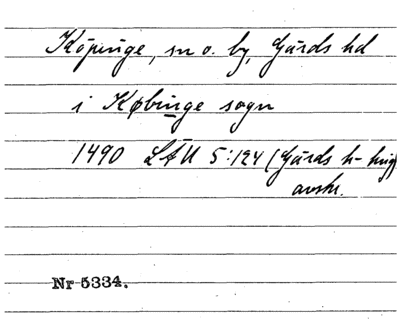 Köpinge, sn o. by, Gärds hd
i Købinge sogn
1490 LÄU 5:124 (Gärds h-
avskr.
Nr 5334.